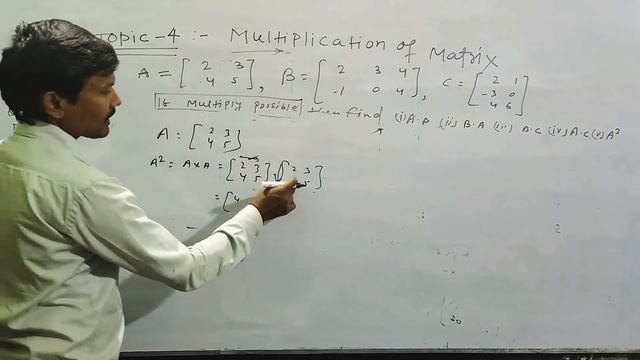 Topic-4 :- Multiplication of Matrix
A = [ 2 3 4 5 ] , B = [ 2 3 4 -1 0 4 ] , C = [ 2 1 -3 0 4 6 ]
If Multiply possible then find (i) A.B (ii) B.A (iii) B.C (iv) A.C (v) A²
A = [ 2 3 4 5 ]
A² = A × A = [ 2 3 4 5 ] [ 2 3 5 ]
= [ 4